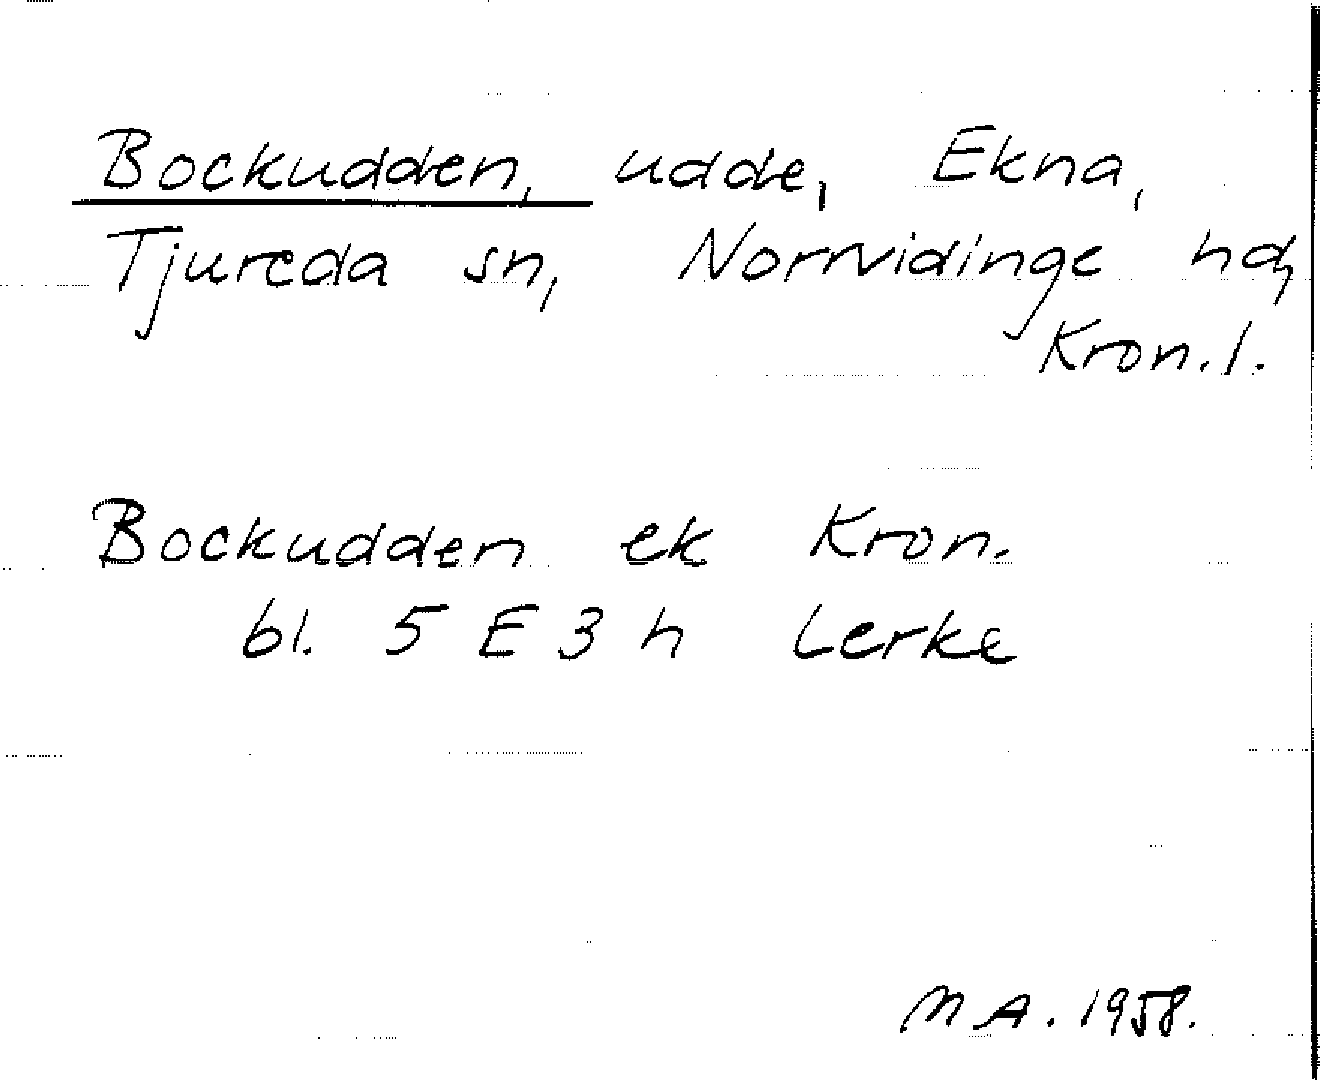 Bockudden, udde, Ekna,
Tjureda sn, Norrvidinge hd,
Kron. l.
Bockudden ek Kron.
bl. 5 E 3 h Lerke
M A. 1958.